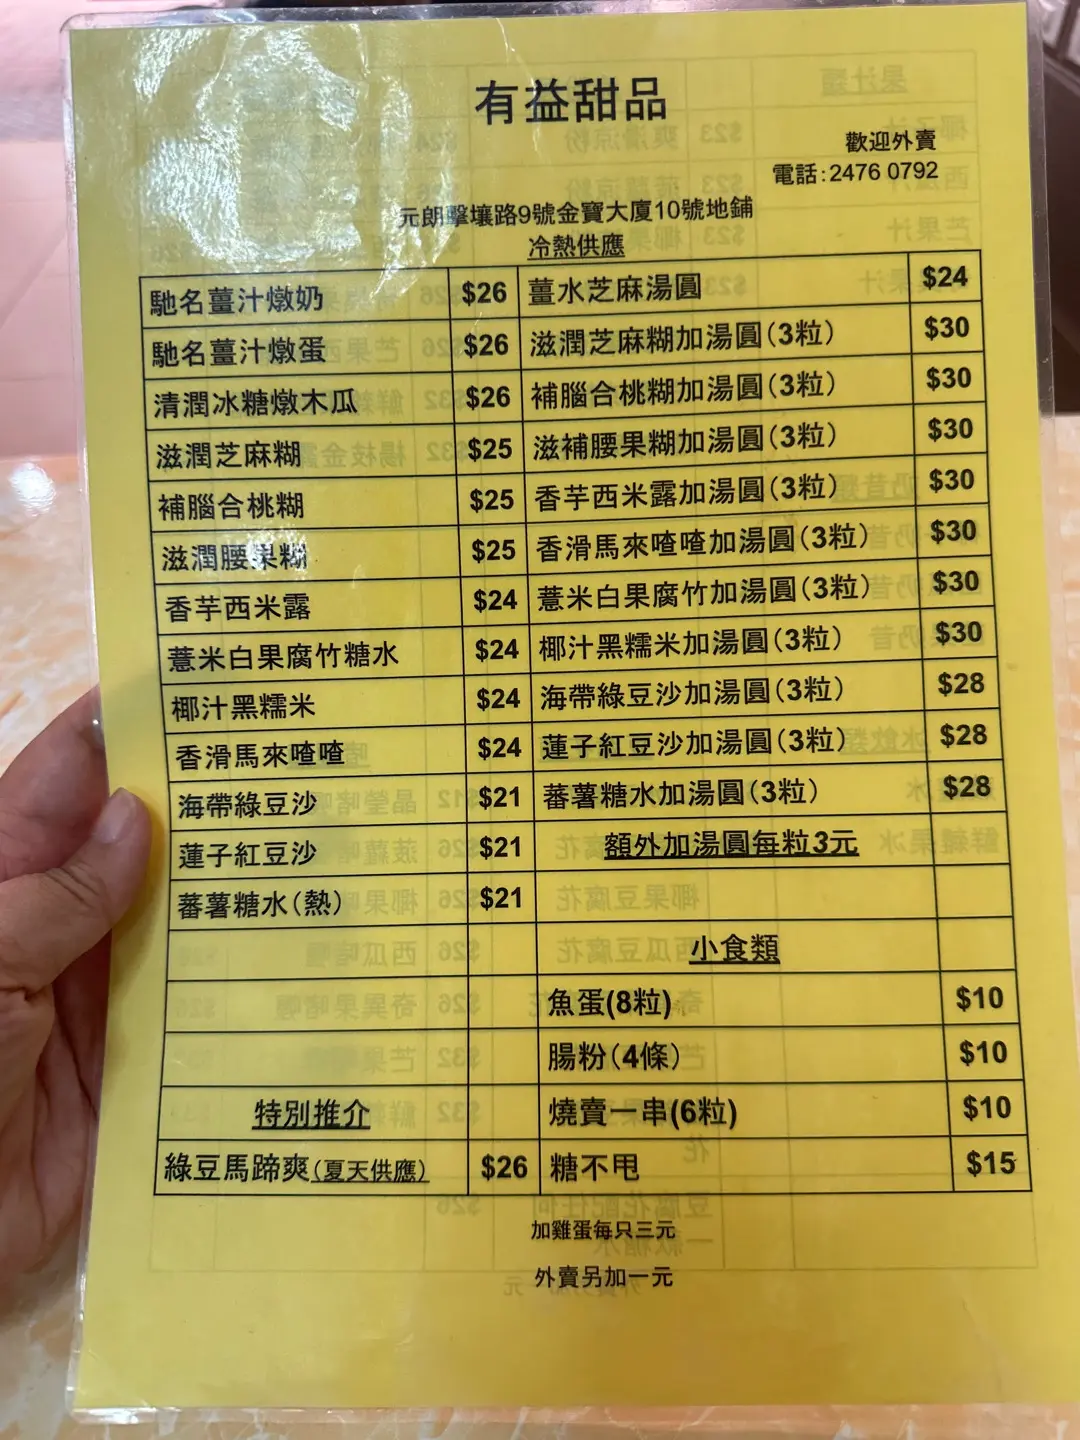 有益甜品
歡迎外賣
電話:2476 0792
元朗擊壤路9號金寶大廈10號地鋪
冷熱供應
馳名薑汁燉奶 $26 薑水芝麻湯圓 $24
馳名薑汁燉蛋 $26 滋潤芝麻糊加湯圓(3粒) $30
清潤冰糖燉木瓜 $26 補腦合桃糊加湯圓(3粒) $30
滋潤芝麻糊 $25 滋補腰果糊加湯圓(3粒) $30
補腦合桃糊 $25 香芋西米露加湯圓(3粒) $30
滋潤腰果糊 $25 香滑馬來喳喳加湯圓(3粒) $30
香芋西米露 $24 薏米白果腐竹加湯圓(3粒) $30
薏米白果腐竹糖水 $24 椰汁黑糯米加湯圓(3粒) $30
椰汁黑糯米 $24 海帶綠豆沙加湯圓(3粒) $28
香滑馬來喳喳 $24 蓮子紅豆沙加湯圓(3粒) $28
海帶綠豆沙 $21 蕃薯糖水加湯圓(3粒) $28
蓮子紅豆沙 $21 額外加湯圓每粒3元
蕃薯糖水(熱) $21
小食類
魚蛋(8粒) $10
腸粉(4條) $10
特別推介 燒賣一串(6粒) $10
綠豆馬蹄爽(夏天供應) $26 糖不甩 $15
加雞蛋每只三元
外賣另加一元